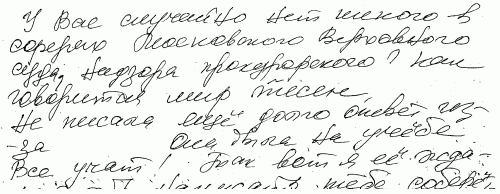 У Вас случайно нет никого в
Московского Верховного
суда, надзора прокурорского? Как
говорится мир тесен.
Не писала ещё долго ответ из-
-за она была на учёбе
Все учат! Так вот я её жда-
написать тебе